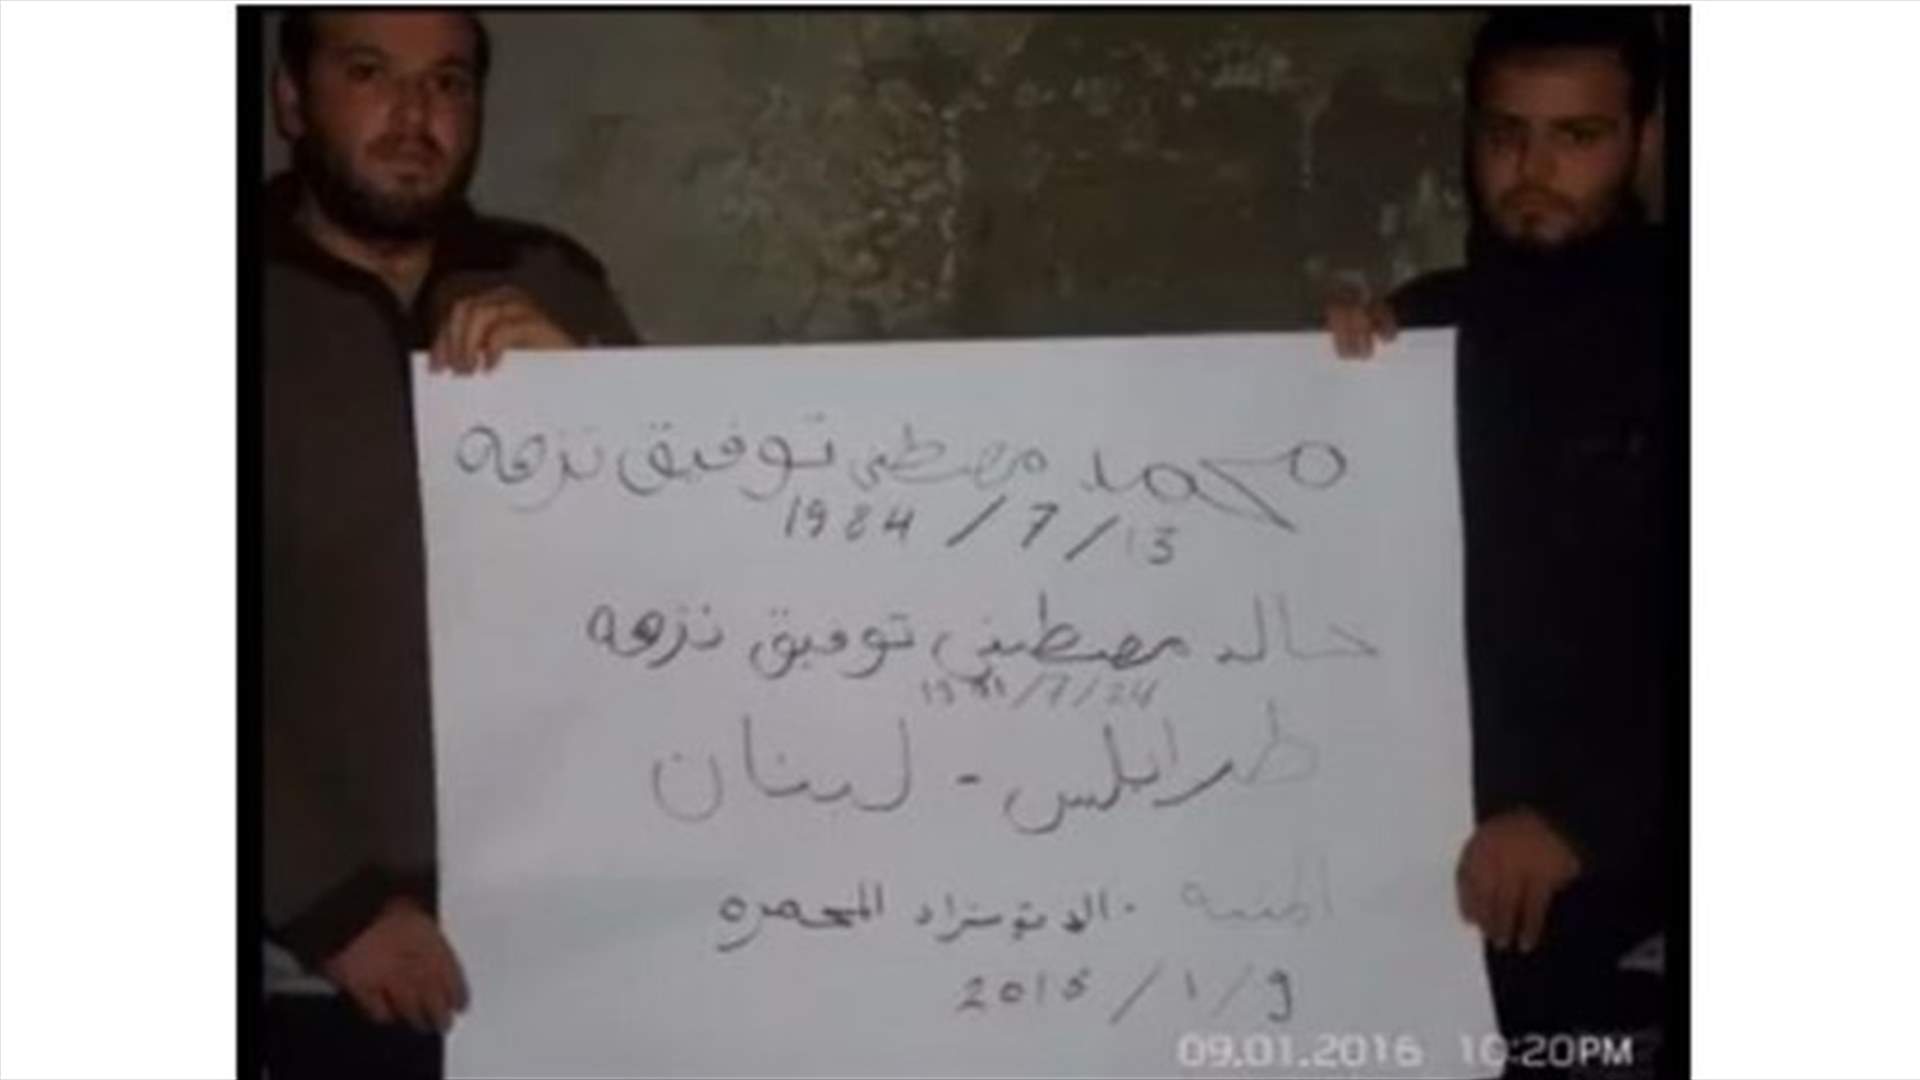 محمد مصطفى توفيق نزهه
1984 / 7 / 13
خالد مصطفى توفيق نزهه
/ 7 / 24
طرابلس - لبنان
المنيه - المحمره
/ 1 / 9
09.01.2016 10:20PM